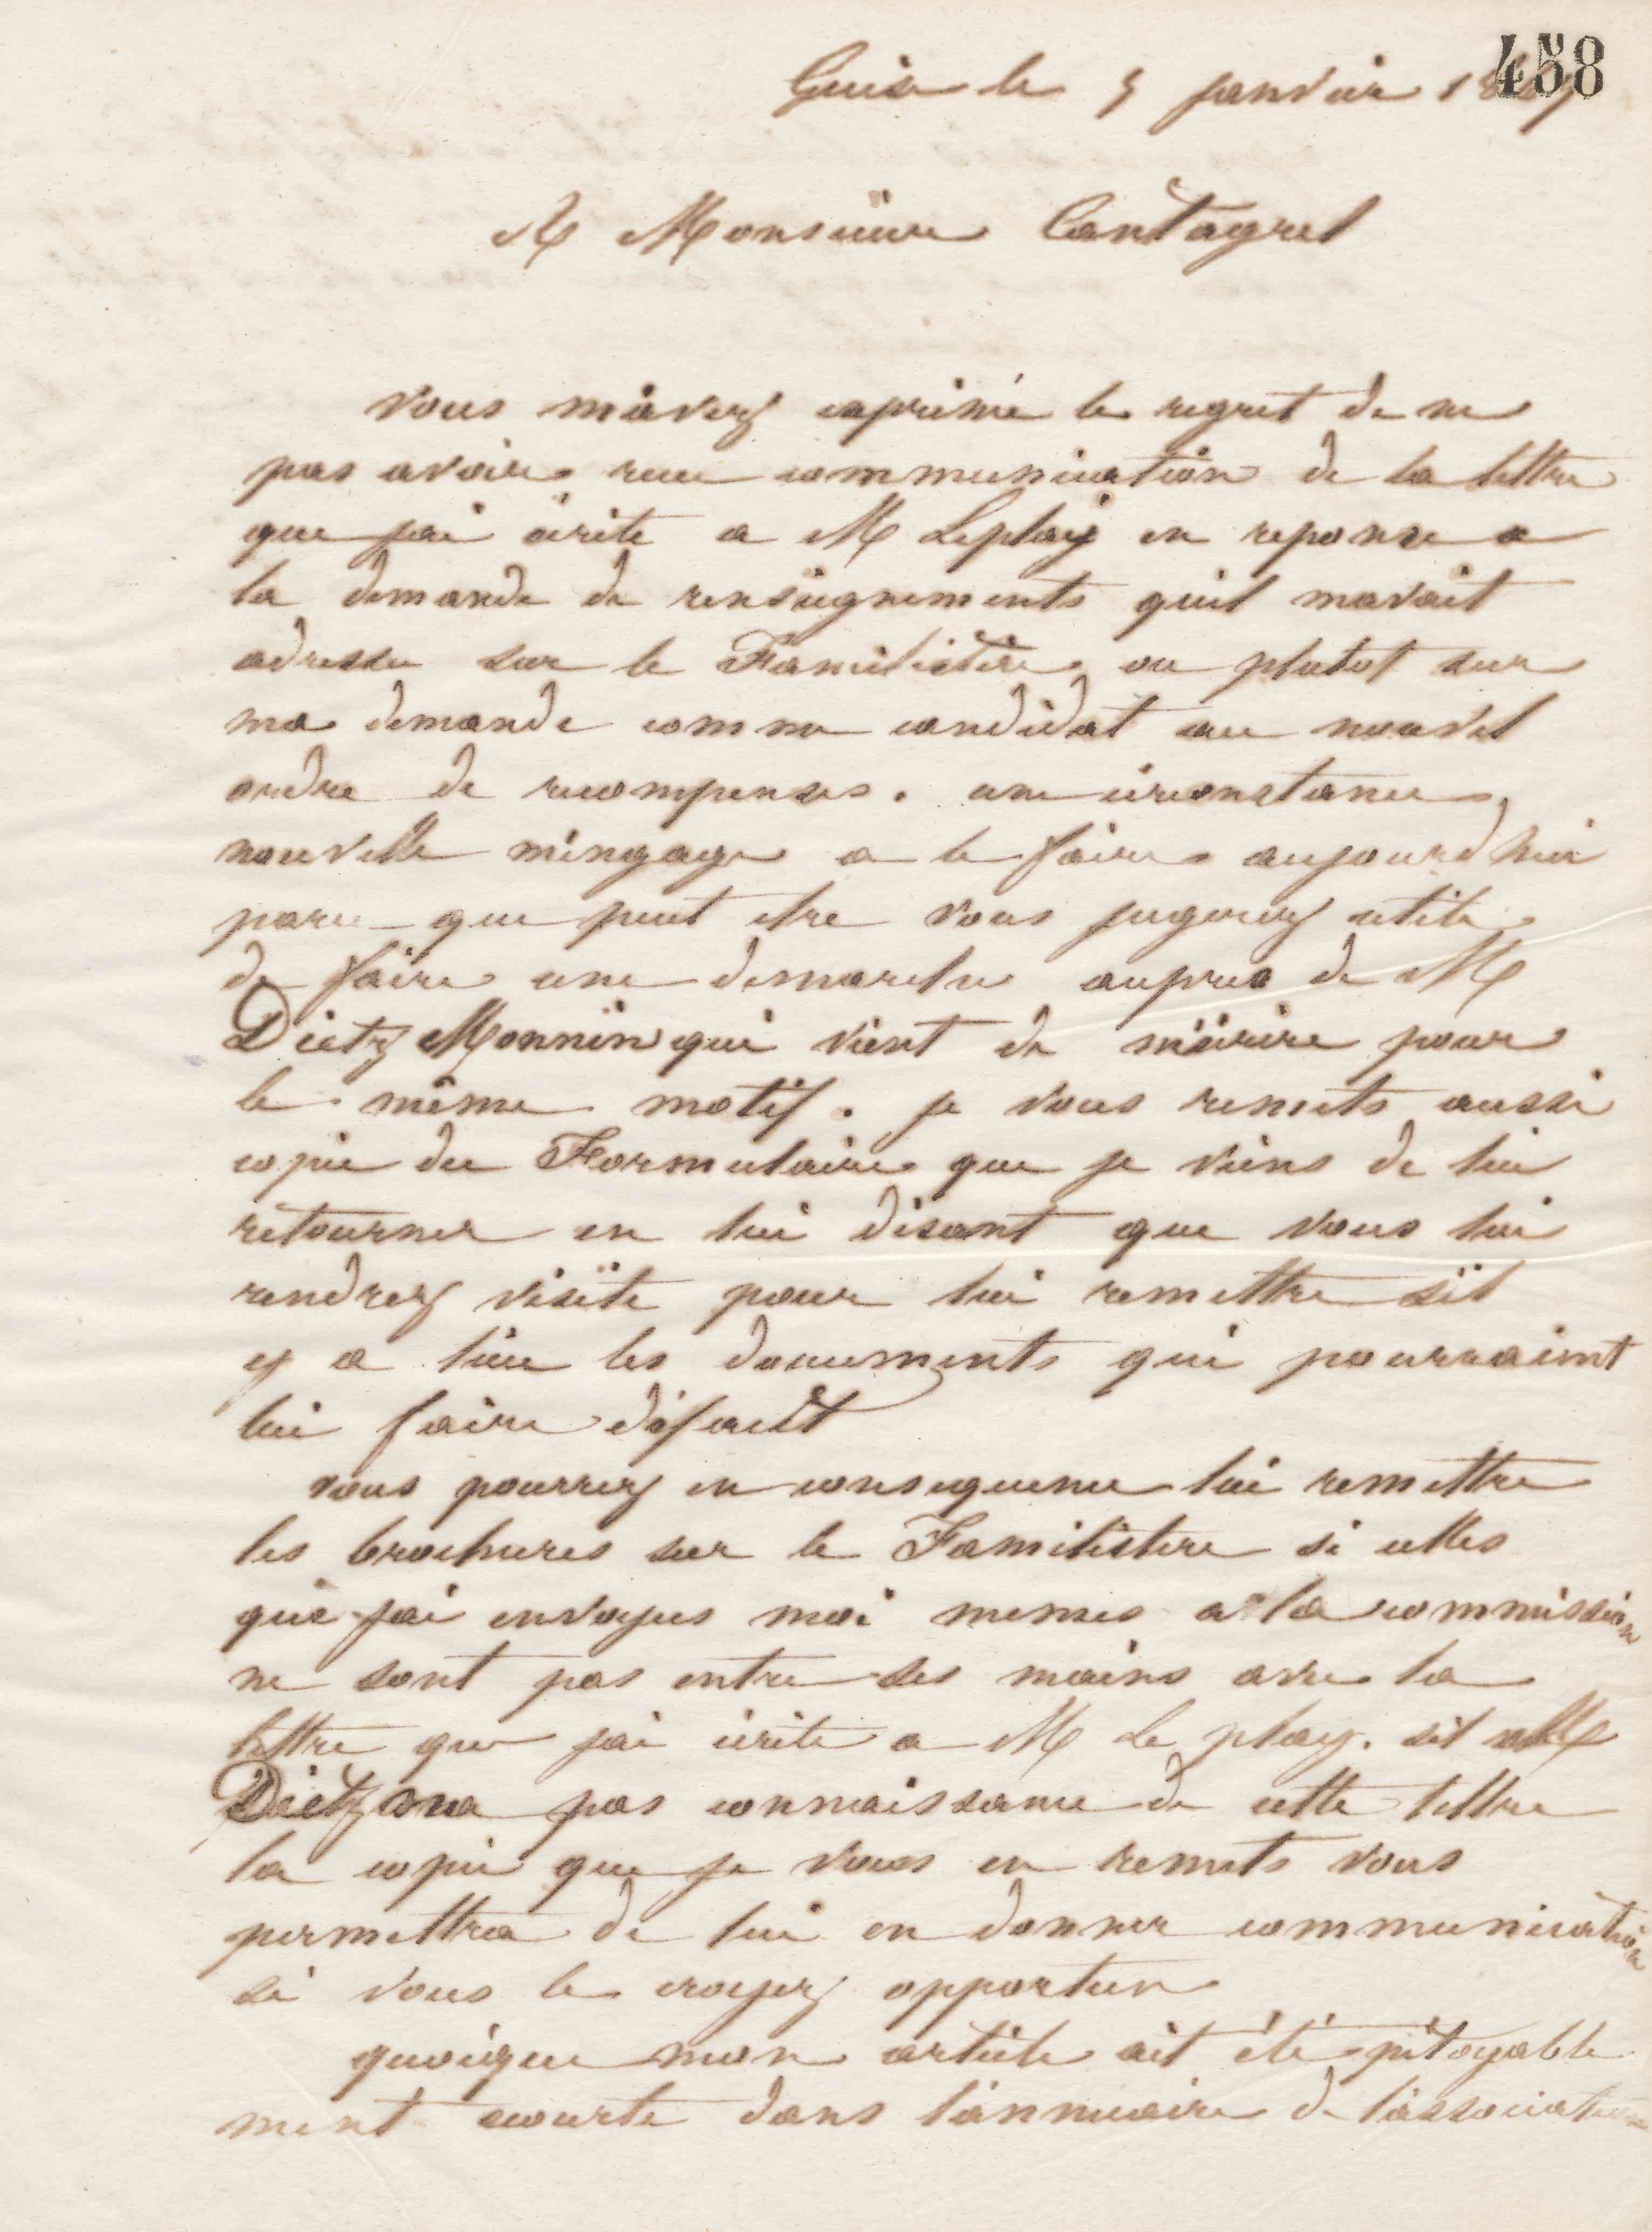 458
Guise le 5 janvier 1867
A Monsieur Cantagrel
vous m'avez exprimé le regret de ne
pas avoir recu communication de la lettre
que jai écrite a M Leplay en reponse a
la demande de renseignements quil mavait
adressee sur le Familistère ou plutot sur
ma demande comme candidat au nouvel
ordre de recompenses. une circonstance
nouvelle m'engage a le faire aujourd hui
parce que peut etre vous jugerez utile
de faire une demarche aupres de M
Dietz Monnin qui vient de m'écrire pour
le même motif. je vous remets aussi
copie du Formulaire que je viens de lui
retourner en lui disant que vous lui
rendrez visite pour lui remettre sil
y a lieu les documents qui pourraient
lui faire défaut
vous pourrez en consequence lui remettre
les brochures sur le Familistere si celles
que jai envoyees moi memes a la commission
ne sont pas entre ses mains avec la
lettre que jai écrite a M Le play. sil M
Dietz na pas connaissance de cette lettre
la copie que je vous en remets vous
permettra de lui en donner communication
si vous le croyez opportun
quoique mon article ait été pitoyable
ment ecourté dans l'annuaire de l'association